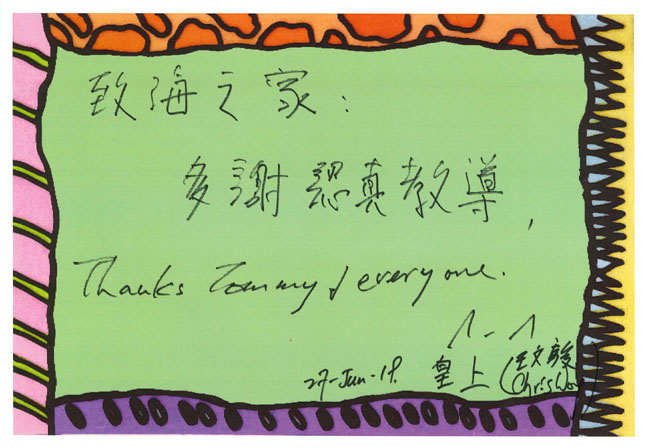 致海之家：
多謝認真教導，
Thanks Tommy & everyone.
^-^
皇上 (王文
27-Jun-18. (Chris